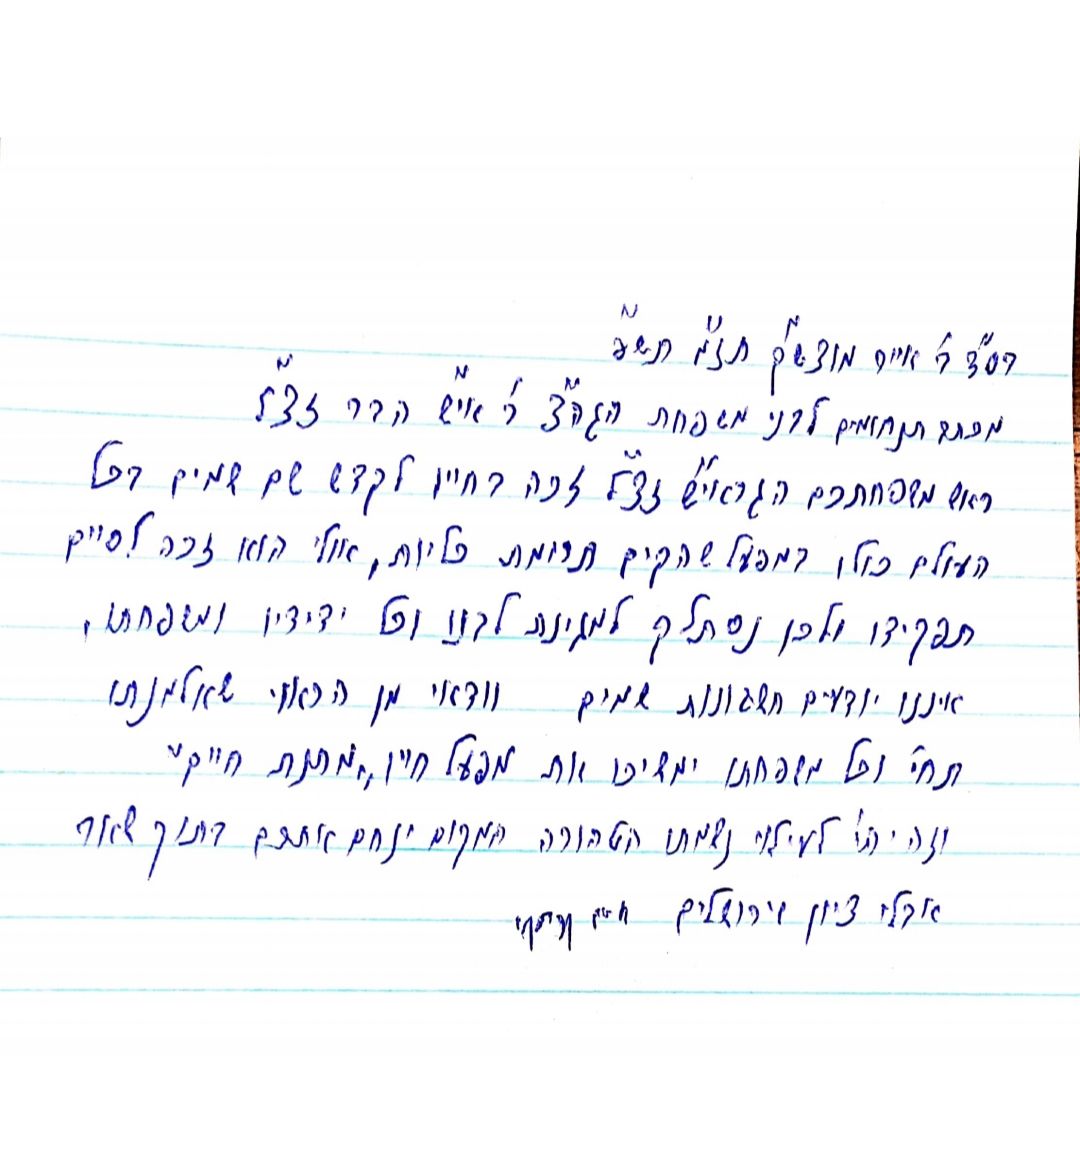 בס"ד ר' אייר מוצש"ק תזו"מ תש"פ
מכתב תנחומים לבני משפחת הגה"צ ר' אי"ש הבר זצ"ל
ראש משפחתכם הגראי"ש זצ"ל זכה בחייו לקדש שם שמים בכל
העולם כולו במפעל שהקים תרומת כליות, אולי הוא זכה לסיים
תפקידו ולכן נסתלק למגינת לבנו וכל ידידיו ומשפחתו,
איננו יודעים חשבונות שמים וודאוי מן הראוי שאלמנתו
תחי' וכל משפחתו ימשיכו את מפעל חייו "מתנת חיים"
וזה יהי' לעילוי נשמתו הטהורה המקום ינחם אתכם בתוך שאר
אבלי ציון וירושלים חיים קניבסקי